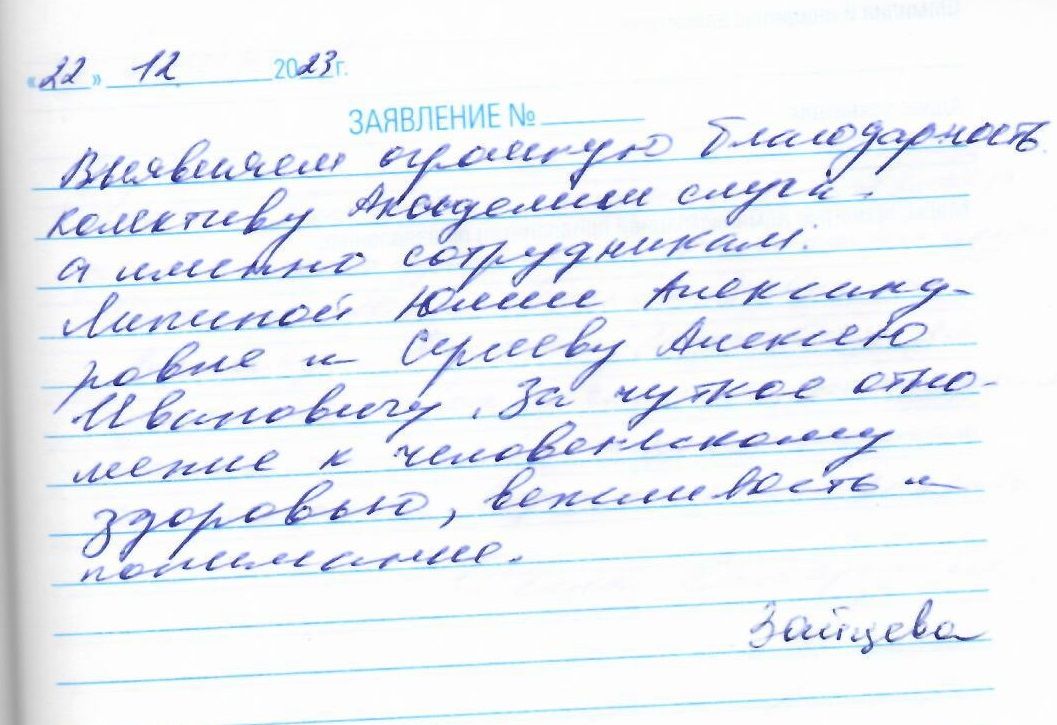 «22» 12 2023 г.
ЗАЯВЛЕНИЕ №
Выявляем огромную благодарность
колективу Академии слуха -
а именно сотрудникам:
Липиной Юлии Александ-
ровне и Сергееву Алексею
Ивановичу. За чуткое отно-
шение к человеческому
здоровью, вежливость и
понимание.
Зайцева